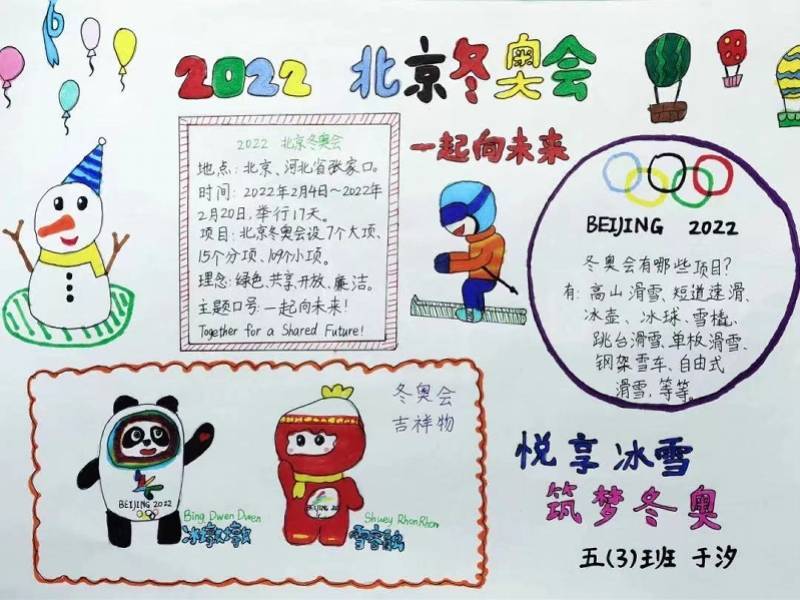 2022 北京冬奥会
一起向未来
2022 北京冬奥会
地点:北京、河北省张家口。
时间:2022年2月4日~2022年
2月20日,举行17天。
项目:北京冬奥会设7个大项、
15个分项、109个小项。
理念:绿色、共享、开放、廉洁。
主题口号:一起向未来!
Together for a Shared Future!
BEIJING 2022
冬奥会有哪些项目?
有:高山滑雪、短道速滑、
冰壶、冰球、雪橇、
跳台滑雪、单板滑雪、
钢架雪车、自由式
滑雪,等等。
冬奥会
吉祥物
BEIJING 2022
Bing Dwen Dwen
冰墩墩
BEIJING 2022
Shuey Rhon Rhon
雪容融
悦享冰雪
筑梦冬奥
五(3)班 于汐